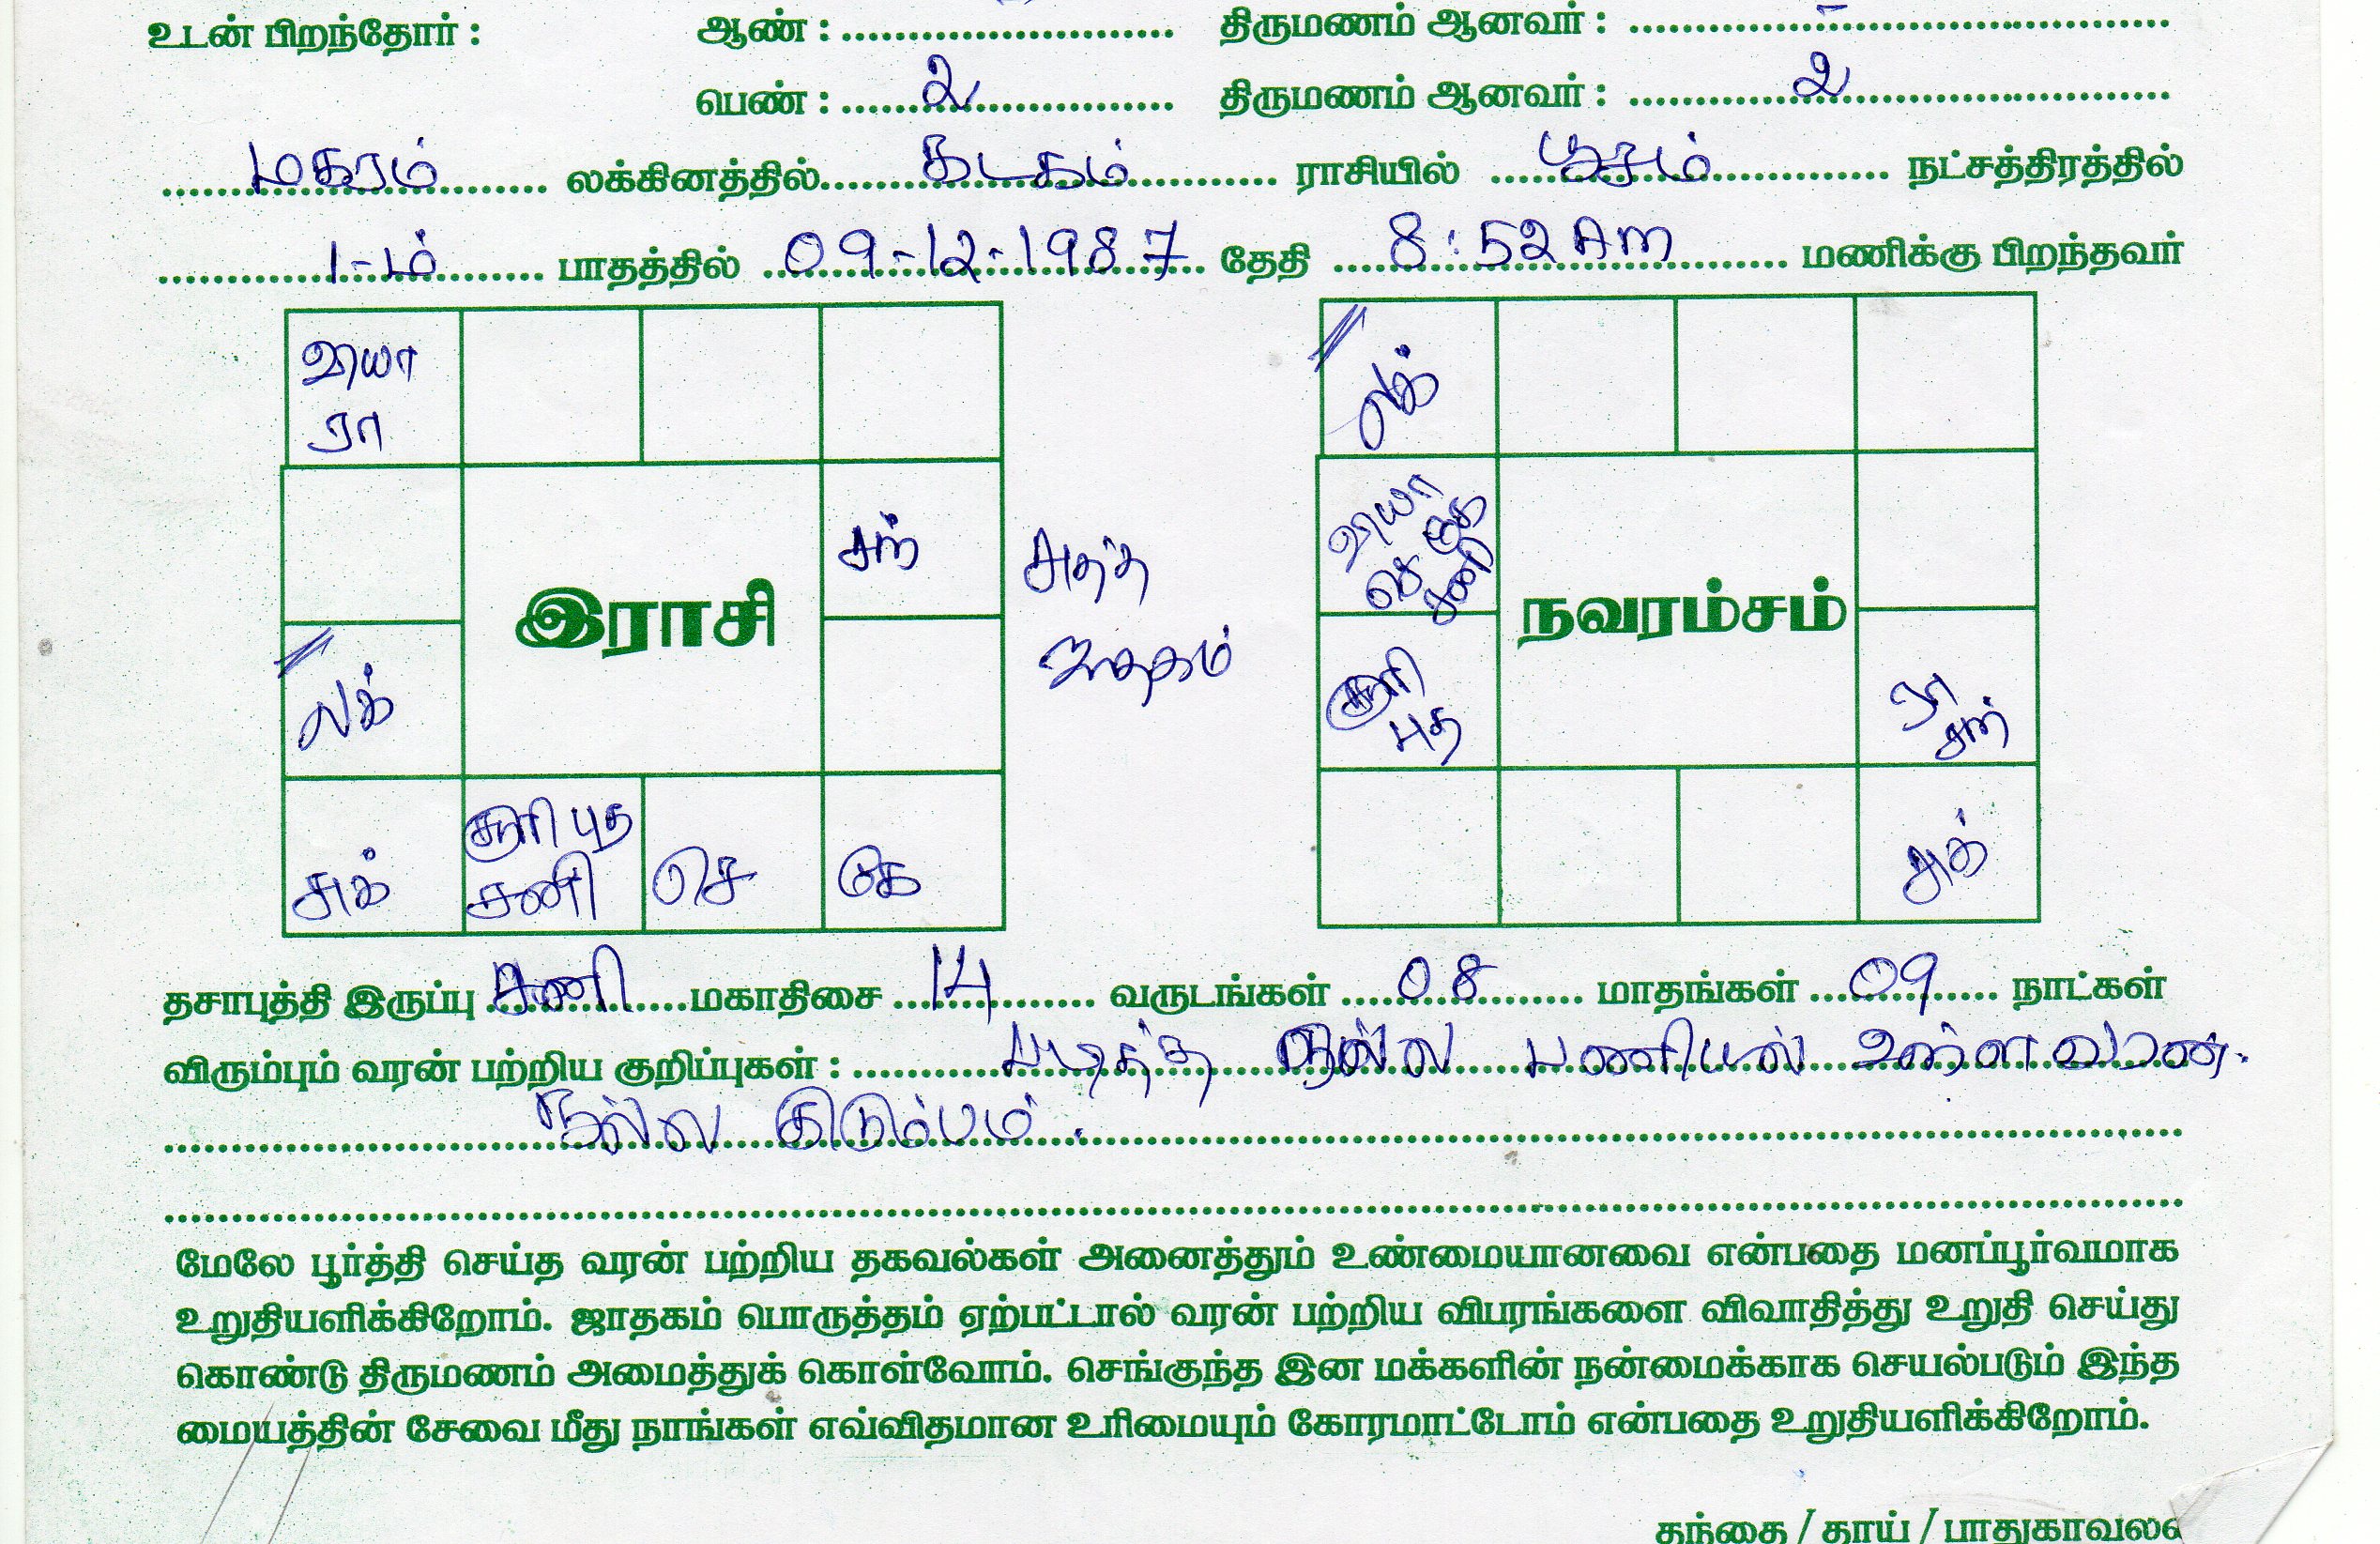 உடன் பிறந்தோர் : ஆண் : ........................ திருமணம் ஆனவர் : ........................
பெண் : 2 திருமணம் ஆனவர் : 2
மகரம் லக்கினத்தில் கடகம் ராசியில் பூசம் நட்சத்திரத்தில்
1-ம் பாதத்தில் 09-12-1987 தேதி 8:52 Am மணிக்கு பிறந்தவர்
வியா
ரா
சந்
லக்
இராசி
சுக்
சூரி புத
சனி
செ
கே
சுத்த
ஜாதகம்
லக்
வியா கே
செ சனி
சூரி
புத
நவரம்சம்
ரா
சந்
சுக்
தசாபுத்தி இருப்பு சனி மகாதிசை 14 வருடங்கள் 08 மாதங்கள் 09 நாட்கள்
விரும்பும் வரன் பற்றிய குறிப்புகள் : படித்த நல்ல பணியில் உள்ள வரன்.
நல்ல குடும்பம்.
மேலே பூர்த்தி செய்த வரன் பற்றிய தகவல்கள் அனைத்தும் உண்மையானவை என்பதை மனப்பூர்வமாக
உறுதியளிக்கிறோம். ஜாதகம் பொருத்தம் ஏற்பட்டால் வரன் பற்றிய விபரங்களை விவாதித்து உறுதி செய்து
கொண்டு திருமணம் அமைத்துக் கொள்வோம். செங்குந்த இன மக்களின் நன்மைக்காக செயல்படும் இந்த
மையத்தின் சேவை மீது நாங்கள் எவ்விதமான உரிமையும் கோரமாட்டோம் என்பதை உறுதியளிக்கிறோம்.
தந்தை / தாய் / பாதுகாவல